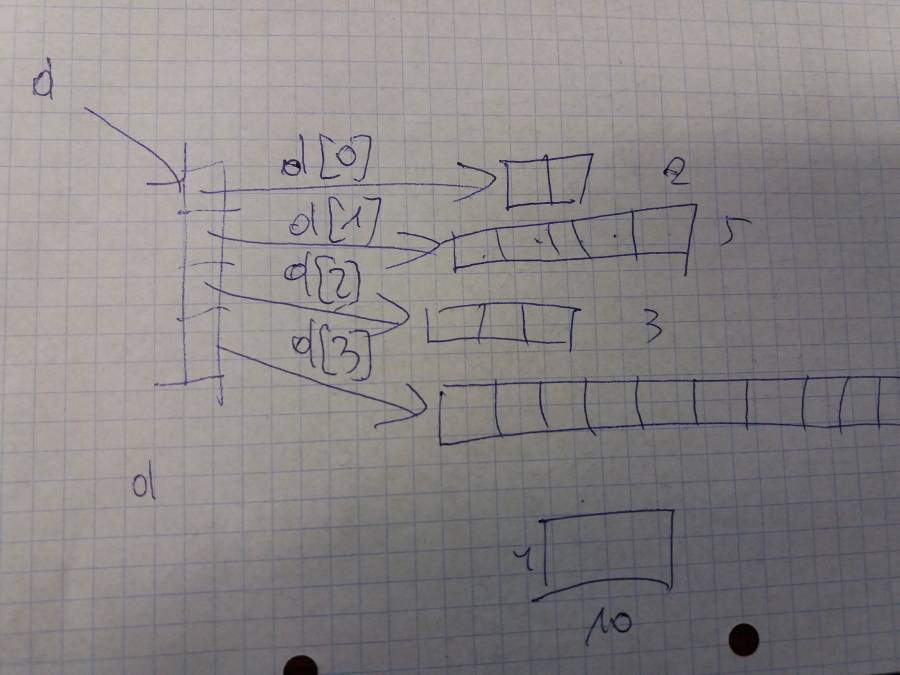 d
d[0] 2
d[1] 5
d[2]
d[3] 3
d
4
10